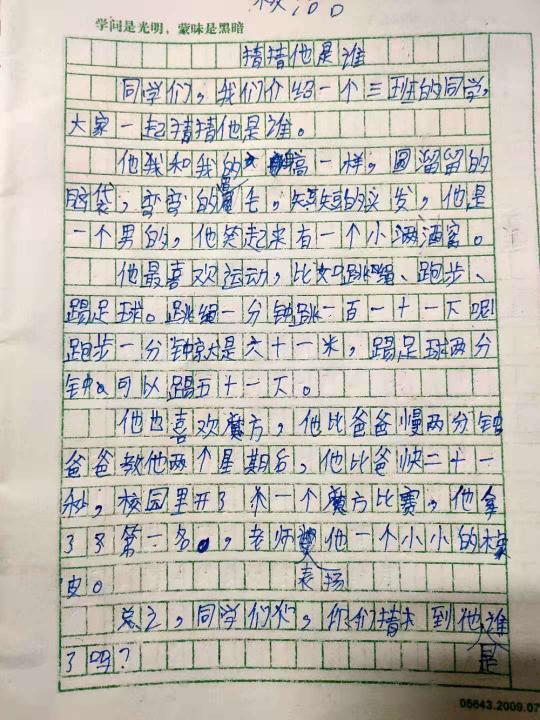 100
学问是光明，蒙昧是黑暗
猜猜他是谁
同学们，我们介绍一个三班的同学，
大家一起猜猜他是谁。
他我和我的一样高，圆溜溜的
脑袋，弯弯的眉毛，短短的头发，他是
一个男的，他笑起来有一个小酒窝。
他最喜欢运动，比如跳绳、跑步、
踢足球。跳绳一分钟跳一百一十一下呢！
跑步一分钟就是六十一米，踢足球两分
钟可以踢五十一下。
他也喜欢魔方，他比爸爸慢两分钟
爸爸教他两个星期后，他比爸快二十一
秒，校园里开了一个魔方比赛，他拿
了第一名，老师他一个小小的橡
皮。 表扬
总之，同学们们，你们猜到他谁
了吗？ 是
05643.2009.07